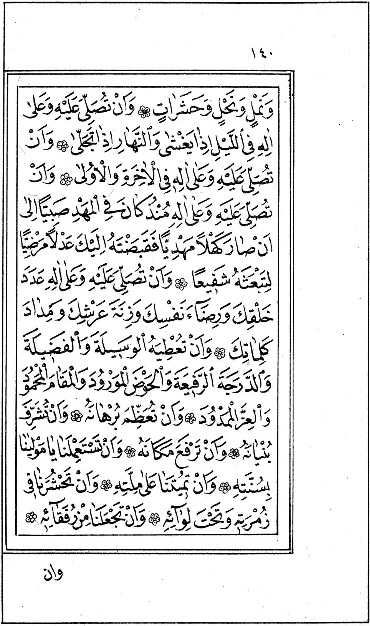 ١٤٠
وَنَمْلٍ وَنَحْلٍ وَحَشَرَاتٍ ❁ وَاَنْ تُصَلِّيَ عَلَيْهِ وَعَلٰى
اٰلِهِ فِي اللَّيْلِ اِذَا يَغْشٰى وَالنَّهَارِ اِذَا تَجَلّٰى ❁ وَاَنْ
تُصَلِّيَ عَلَيْهِ وَعَلٰى اٰلِهِ فِي الْاٰخِرَةِ وَالْاُولٰى ❁ وَاَنْ
تُصَلِّيَ عَلَيْهِ وَعَلٰى اٰلِهِ مُنْذُ كَانَ فِي الْمَهْدِ صَبِيًّا اِلٰى
اَنْ صَارَ كَهْلًا مَهْدِيًّا فَقَبَضْتَهُ اِلَيْكَ عَدْلًا مَرْضِيًّا
لِتَبْعَثَهُ شَفِيعًا ❁ وَاَنْ تُصَلِّيَ عَلَيْهِ وَعَلٰى اٰلِهِ عَدَدَ
خَلْقِكَ وَرِضَاءَ نَفْسِكَ وَزِنَةَ عَرْشِكَ وَمِدَادَ
كَلِمَاتِكَ ❁ وَاَنْ تُعْطِيَهُ الْوَسِيلَةَ وَالْفَضِيلَةَ
وَالدَّرَجَةَ الرَّفِيعَةَ وَالْحَوْضَ الْمَوْرُودَ وَالْمَقَامَ الْمَحْمُودَ
وَالْعِزَّ الْمَمْدُودَ ❁ وَاَنْ تُعَظِّمَ بُرْهَانَهُ ❁ وَاَنْ تُشَرِّفَ
بُنْيَانَهُ ❁ وَاَنْ تَرْفَعَ مَكَانَهُ ❁ وَاَنْ تَسْتَعْمِلَنَا يَا مَوْلٰينَا
بِسُنَّتِهِ ❁ وَاَنْ تُمِيتَنَا عَلٰى مِلَّتِهِ ❁ وَاَنْ تَحْشُرَنَا فِي
زُمْرَتِهِ وَتَحْتَ لِوَائِهِ ❁ وَاَنْ تَجْعَلَنَا مِنْ رُفَقَائِهِ ❁
وان